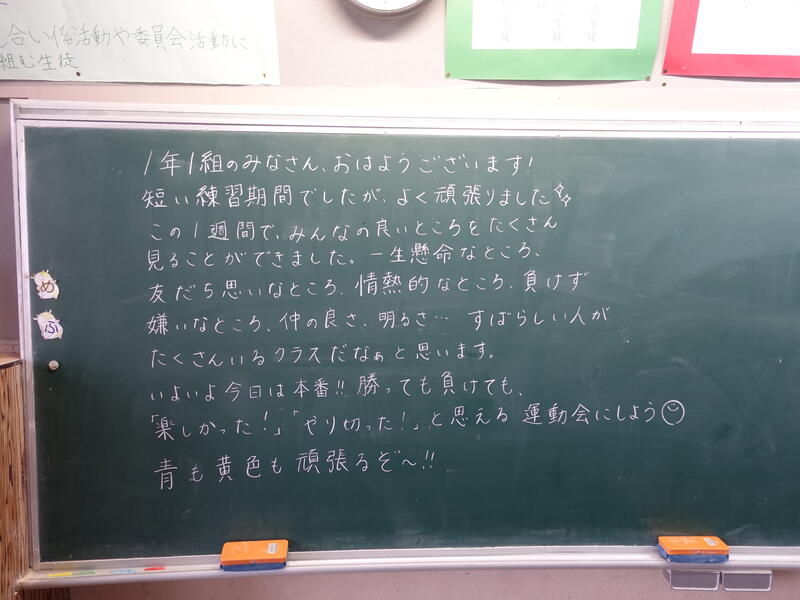 合い係活動や委員会活動に
組む生徒
1年1組のみなさん、おはようございます!
短い練習期間でしたが、よく頑張りました
この1週間で、みんなの良いところをたくさん
見ることができました。一生懸命なところ、
友だち思いなところ、情熱的なところ、負けず
嫌いなところ、仲の良さ、明るさ… すばらしい人が
たくさんいるクラスだなぁと思います。
いよいよ今日は本番!! 勝っても負けても、
「楽しかった!」「やり切った!」と思える運動会にしよう
青も黄色も頑張るぞ〜!!
め
ふ